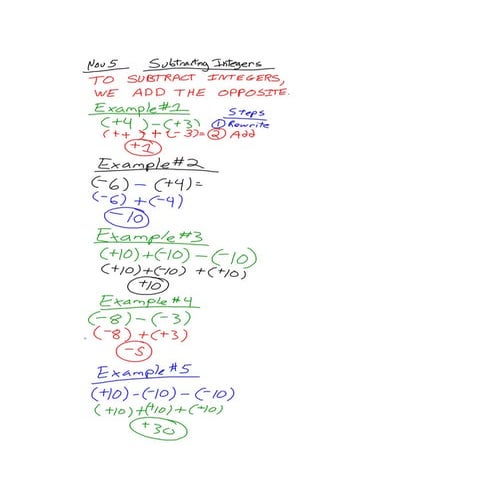 Nov 5 Subtracting Integers
TO SUBTRACT INTEGERS,
WE ADD THE OPPOSITE.
Example #1 Steps
(+4) - (+3) ① Rewrite
(++) + (-3)= ② Add
+1
Example #2
(-6) - (+4)=
(-6) + (-4)
-10
Example #3
(+10)+(-10) - (-10)
(+10)+(-10) +(+10)
+10
Example #4
(-8) - (-3)
(-8) + (+3)
-5
Example #5
(+10) - (-10) - (-10)
(+10) + (+10) + (+10)
+30